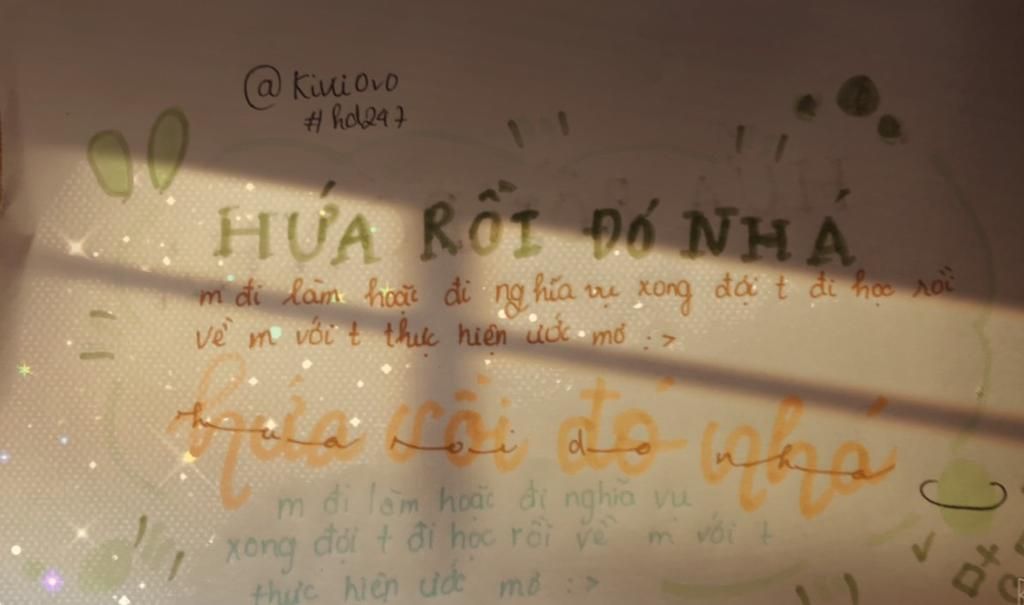 @Kiuiovo
#hd247
HỨA RỒI ĐÓ NHÁ
m đi làm hoặc đi nghĩa vụ xong đợi t đi học rồi
về m với t thực hiện ước mơ :>
hứa rồi đó nhá
hua roi do nha
m đi làm hoặc đi nghĩa vụ
xong đợi t đi học rồi về m với t
thực hiện ước mơ :>